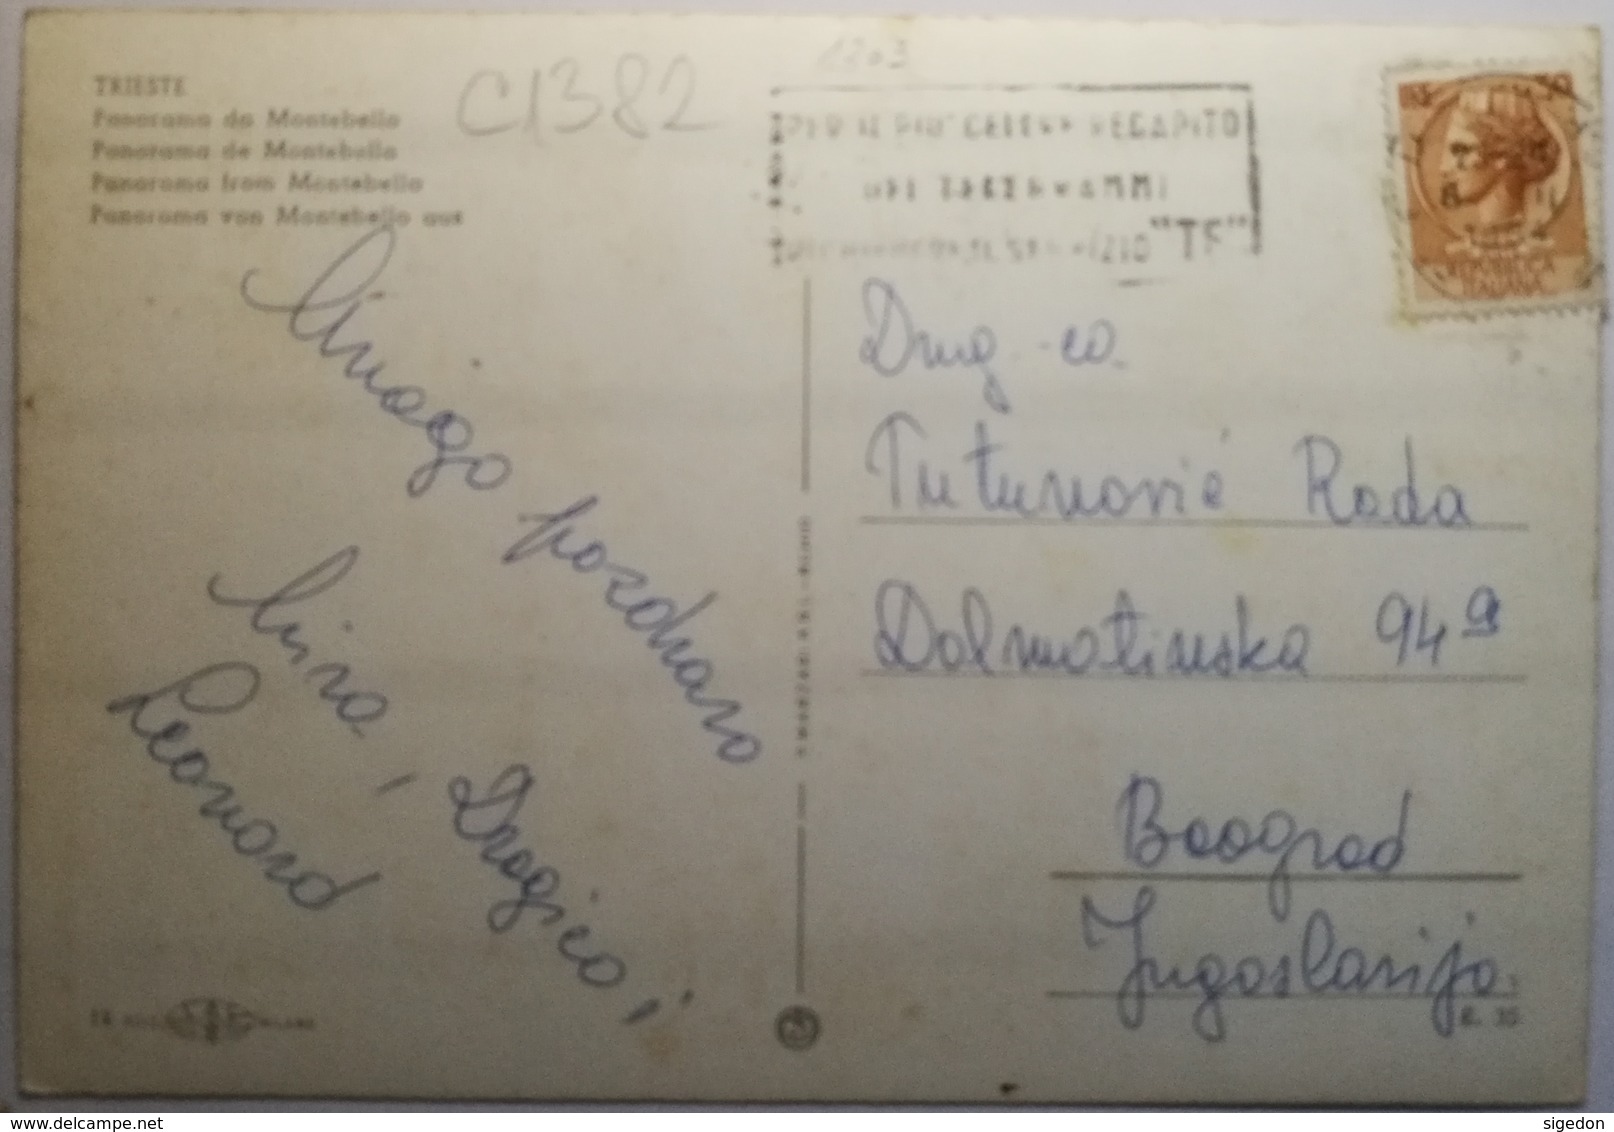 TRIESTE
Panorama da Montebello
Panorama de Montebello
Panorama from Montebello
Panorama von Montebello aus
C1382
1203
PER IL PIU' CELERE RECAPITO
DEI TELEGRAMMI
"TF"
REPUBBLICA
ITALIANA
Mnogo pozdrava
Mira, Dragica i
Leonard
Drug-ca
Tutunović Rada
Dalmatinska 94a
Beograd
Jugoslavija
R. 35
sigedon